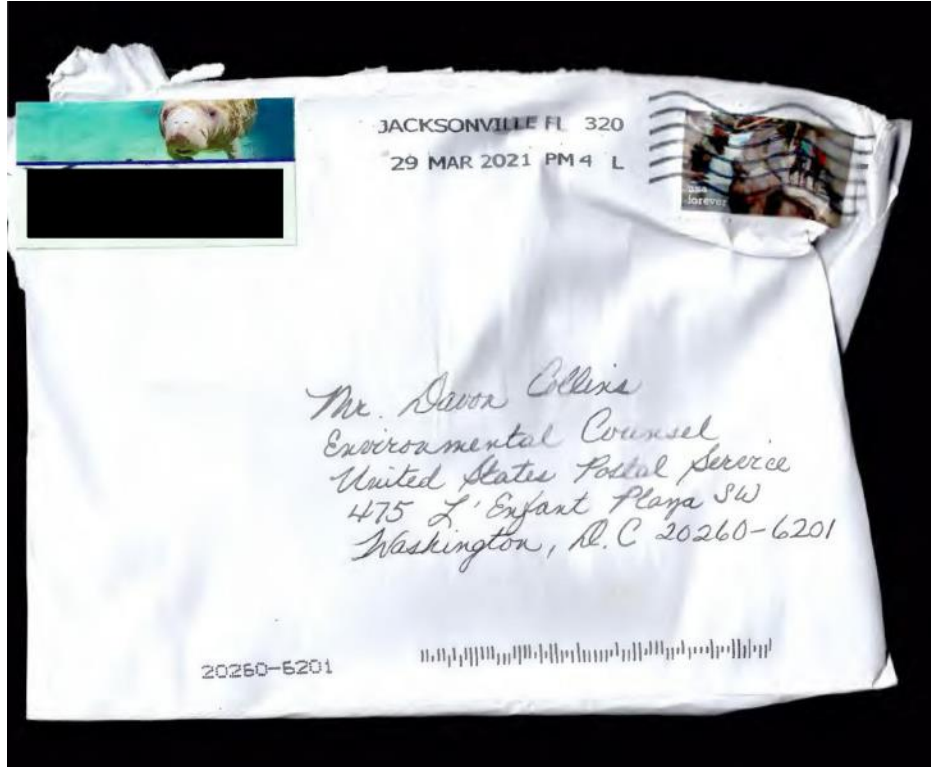 JACKSONVILLE FL 320
29 MAR 2021 PM 4 L
usa
forever
Mr. Davon Collins
Environmental Counsel
United States Postal Service
475 L'Enfant Plaza SW
Washington, D.C 20260-6201
20260-6201